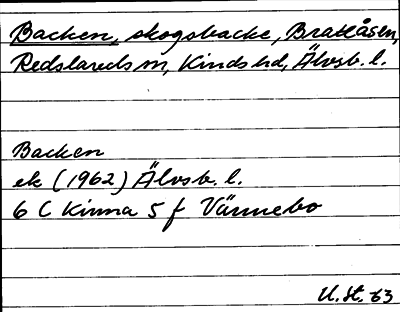 Backen, skogsbacke, Brattåsen,
Redslareds sn, Kinds hd, Älvsb. l.
Backen
ek (1962) Älvsb. l.
6 C Kinna 5 f Vännebo
U. St. 63